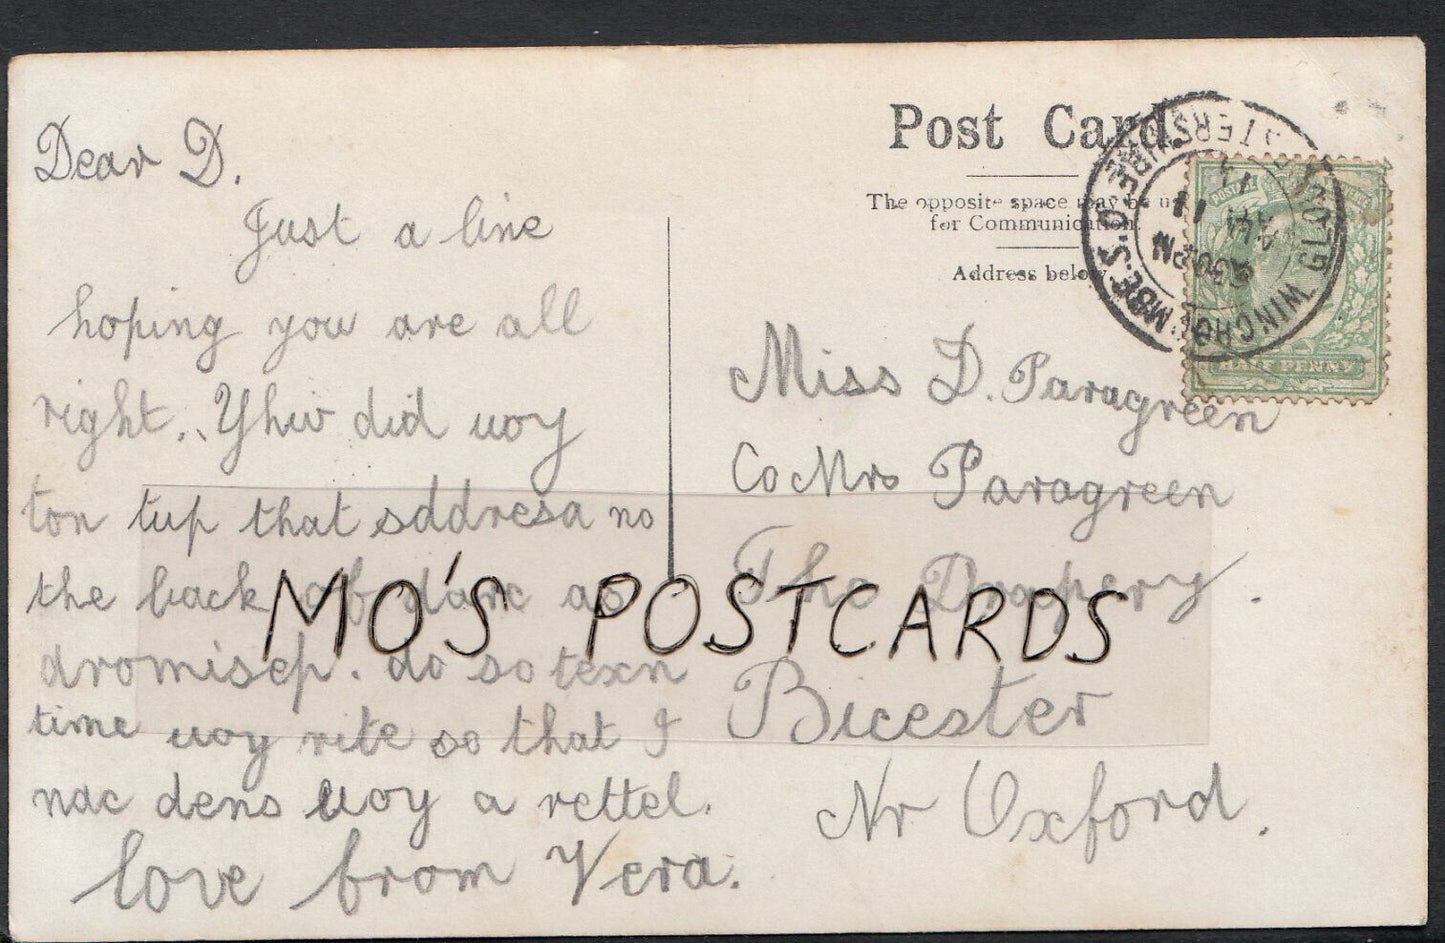 Dear D.
Just a line
hoping you are all
right. Yhw did uoy
ton tup that sddresa no
the back of darc as
dromisep. do so texn
time uoy rite so that I
nac dens uoy a rettel.
love from Vera.
Post Card
The opposite space may be u
for Communication.
Address below
WINCHCOMBE.S.O.
GLOUCESTERSHIRE
9.30 PM
11
Miss D. Paragreen
Co Mrs Paragreen
The Drapery.
Bicester
Nr Oxford.
MO'S POSTCARDS